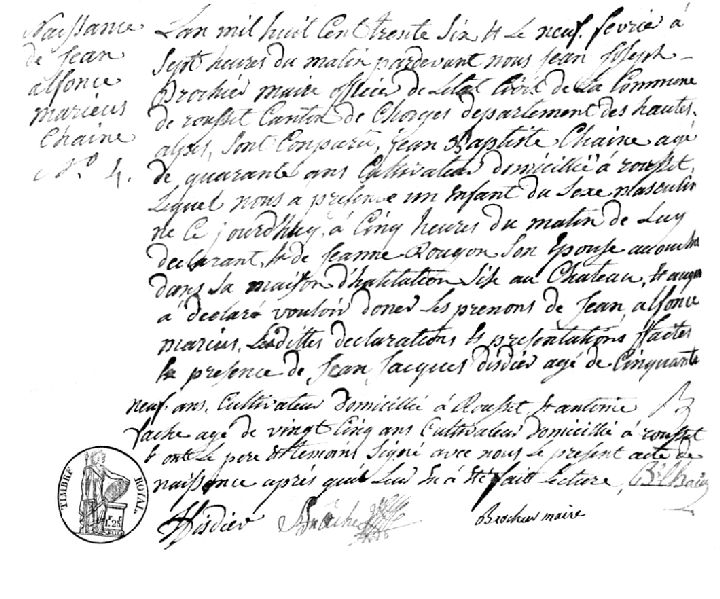 Naissance
de Jean
alfonce
marieus
Chaine
N.º 4.
Lan mil huit Cent trente Six & Le neuf fevrié à
Sept heures du matin pardevant nous jean joseph
Brochier maire officier de Letat Civil de La Commune
de rousset Canton de Chorges departement des hautes
alpes, Sont Conparu, jean Baptiste Chaine agé
de quarante ans Cultivateur domicillié à rousset
Lequel nous a presenté un Enfant du Sexe masculin
né Ce jourdhuy, à Cinq heures du matin de Luy
declarant, & de jeanne Rougon Son Epouse
dans Sa maison d'habitation Size au Chateau, & auquel
à declaré vouloir doner Les prenons de jean, alfonce
marius, Lesdittes declarations & presentations ffaites
En presence de jean jacques disdier agé de Cinquante
neuf ans, Cultivateur domicillié à Rousset & antoine
agé de vingt Cinq ans Cultivateur domicillié à rousset
& ont Le pere & temons Signé avec nous Le present acte de
naissance après quil Leur En à Eté fait Lecture, B.te Chaine
Disdier
Brochier maire
TIMBRE ROYAL